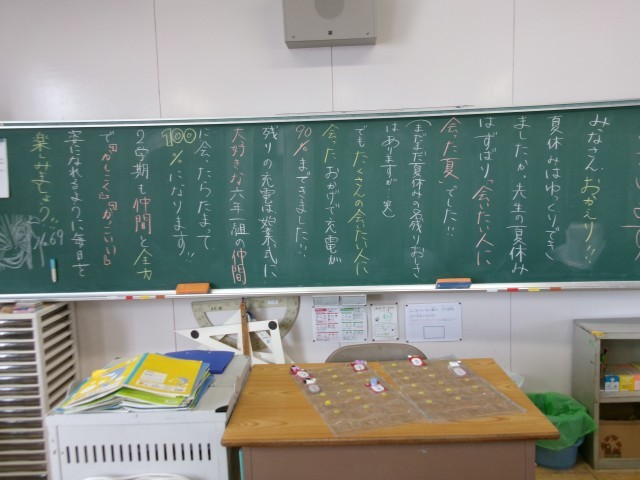 みなさん、おかえり!!
夏休みはゆっくりでき
ましたか。先生の夏休み
はずばり「会いたい人に
会えた夏」でした!!
(まだまだ夏休みの名残りおしさ
はありますが(笑)
でもたくさんの会いたい人に
会えたおかげで充電が
90%まできました!!
残りの充電は始業式に
大好きな六年一組の仲間
に会えたらたまって
100%になります!!
2学期も仲間と全力
で「かしこく」「かっこいい」
楽しみましょう!!
No.69